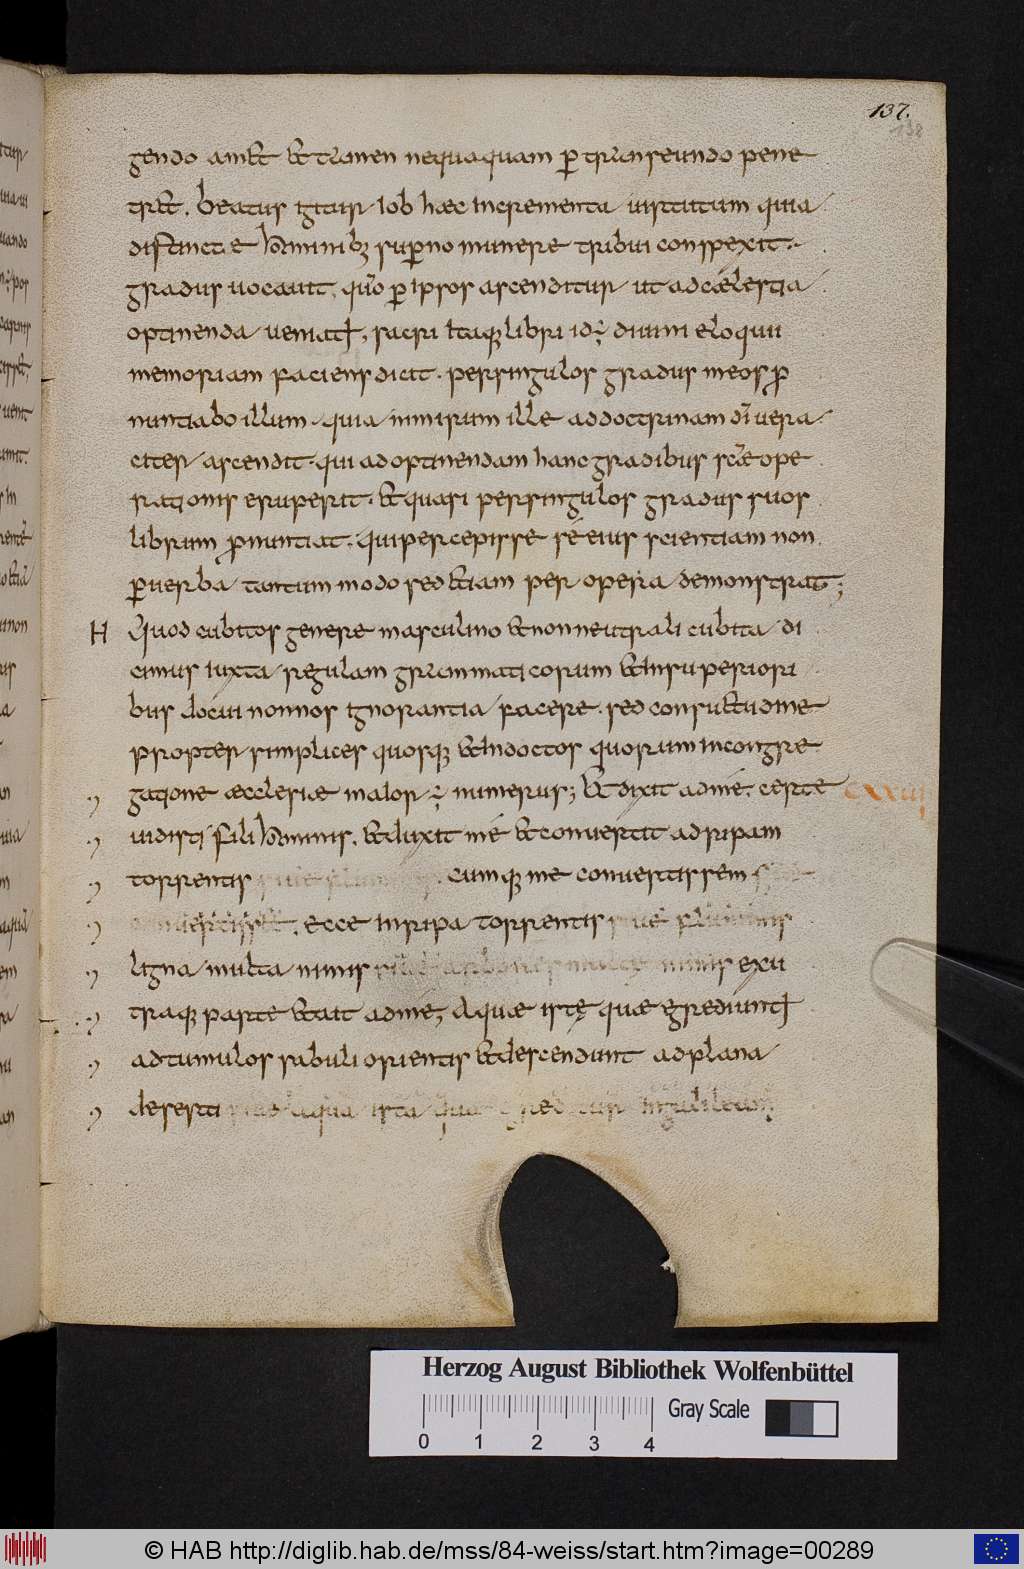 137.
138
gendo amet et tamen nequaquam ꝑ transeundo pene
tret. beatus igitur iob haec incrementa uirtutum quia
distincte hominibꝫ suꝑno munere tribui conspexit.
gradus uocauit, quō ꝑ ipsos ascenditur ut ad caelestia
optinenda ueniatꝉ, sacri itaqꝫ libri id÷ diuini eloquii
memoriam faciens dicit. per singulos gradus meos ꝓ
nuntiabo illum. quia nimirum ille ad doctrinam dī uera
citer ascendit. qui ad optinendam hanc gradibus scāe ope
rationis eruperit. et quasi per singulos gradus suos
librum ꝓnuntiat. qui percepisse sé eius scientiam non
ꝑ uerba tantum modo sed etiam per opera demonstrat;
H Quod cubitos genere masculino et non neutrali cubita di
cimus iuxta regulam grammaticorum et in superiori
bus docui non nos ignorantia facere. sed consuetudine
propter simplices quosqꝫ et indoctos quorum in congre
gatione aecclesiae maior ÷ numerus; Et dixit ad mé. certe
uidisti fili hominis. et duxit mé et conuertit ad ripam
torrentis cumqꝫ me conuertissem
ecce in ripa torrentis siue fluminis
ligna multa nimis nimis ex u
traqꝫ parte et ait ad mé, Aquae istę quae egrediuntꝉ
ad tumulos sabuli orientis et descendunt ad plana
deserti siue aqua ista
Herzog August Bibliothek Wolfenbüttel
0 1 2 3 4 Gray Scale
© HAB http://diglib.hab.de/mss/84-weiss/start.htm?image=00289